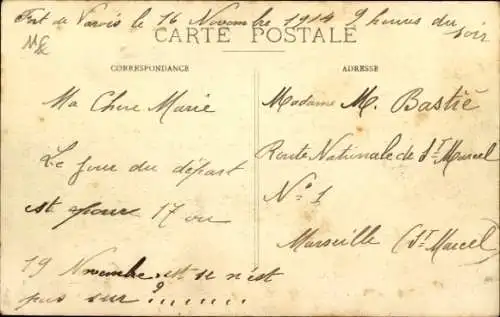 Fort de Vavois le 16 Novembre 1914 9 heures du
soir
CARTE POSTALE
CORRESPONDANCE
ADRESSE
Ma Chere Marie
Le jour du départ
est pour 17 ou
19 Novembre est se n'est
pas sur ?.......
Madame M. Bastié
Route Nationale de St Marcel
N° 1
Marseille (St Marcel)